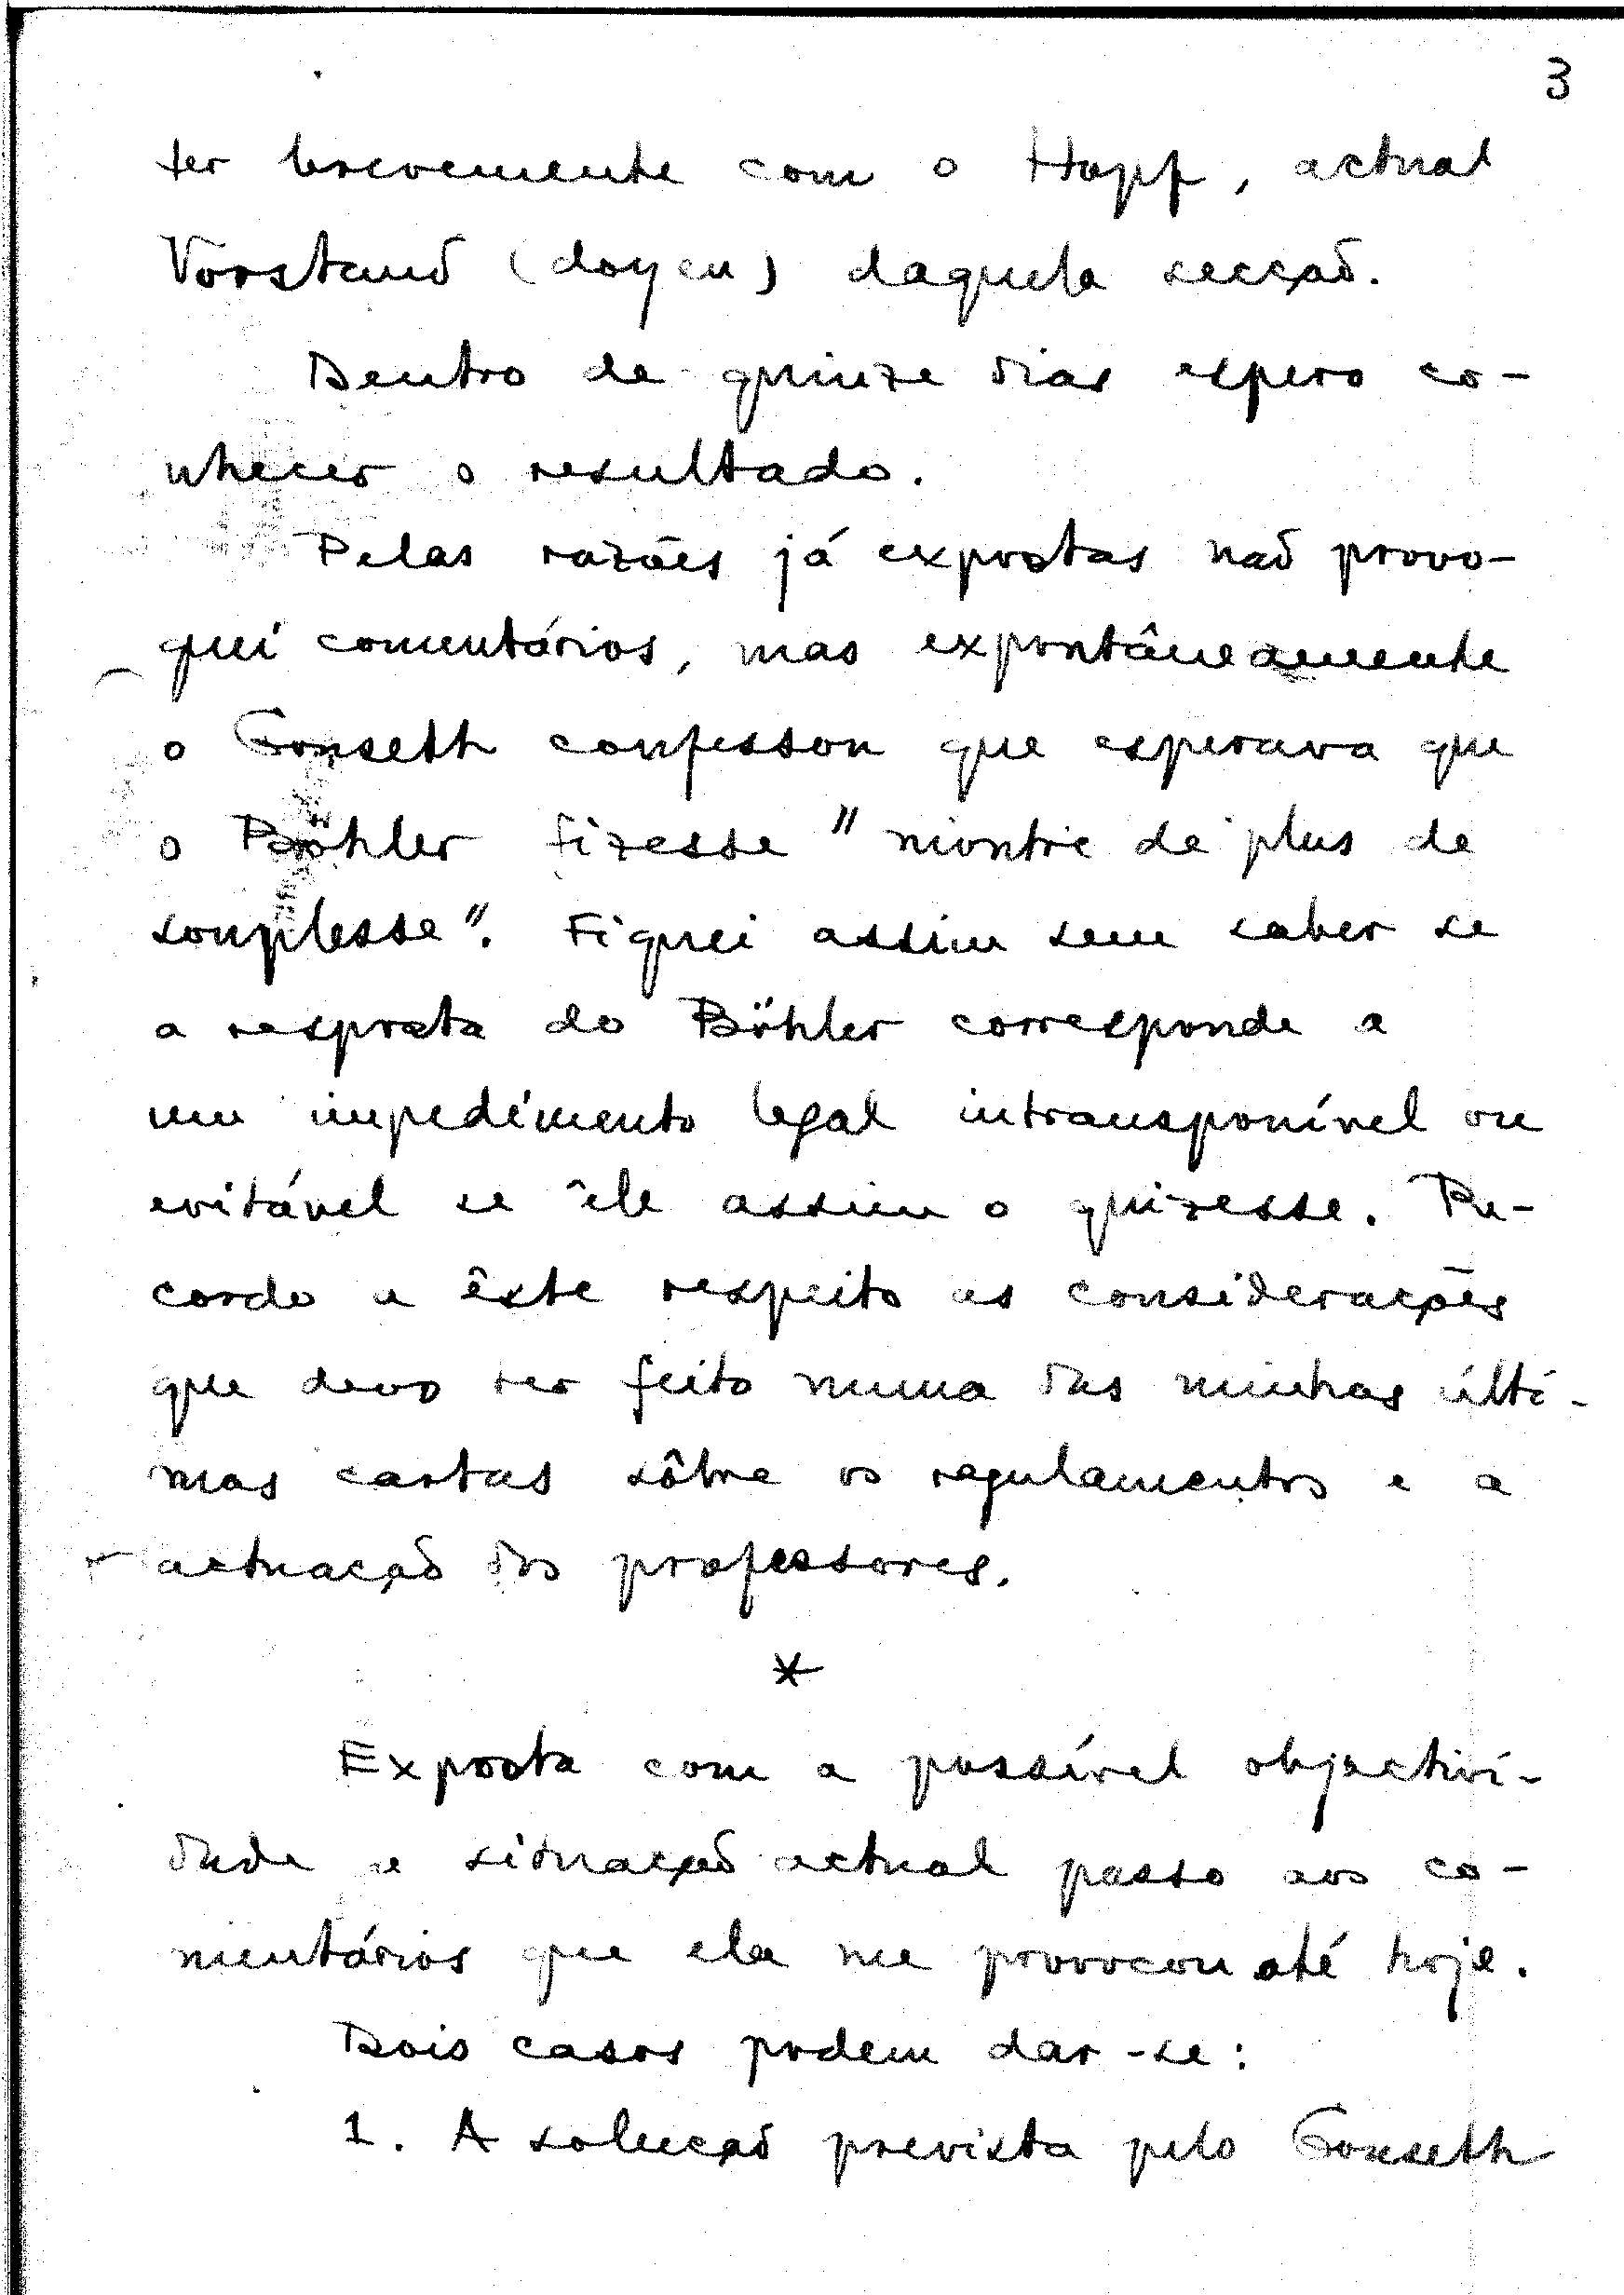 3
ter brevemente com o Hopf, actual
Vorstand (doyen) daquela secção.
Dentro de quinze dias espero co-
nhecer o resultado.
Pelas razões já expostas não provo-
quei comentários, mas expontâneamente
o Gonseth confessou que esperava que
o Böhler fizesse "montre de plus de
souplesse". Fiquei assim sem saber se
a resposta do Böhler corresponde a
um impedimento legal intransponível ou
evitável se êle assim o quizesse. Re-
cordo a êste respeito as considerações
que devo ter feito numa das minhas últi-
mas cartas sôbre os regulamentos e a
actuação dos professores.
*
Exposta com a possível objectivi-
dade a situação actual passo aos co-
mentários que ela me provocou até hoje.
Dois casos podem dar-se:
1. A solução prevista pelo Gonseth